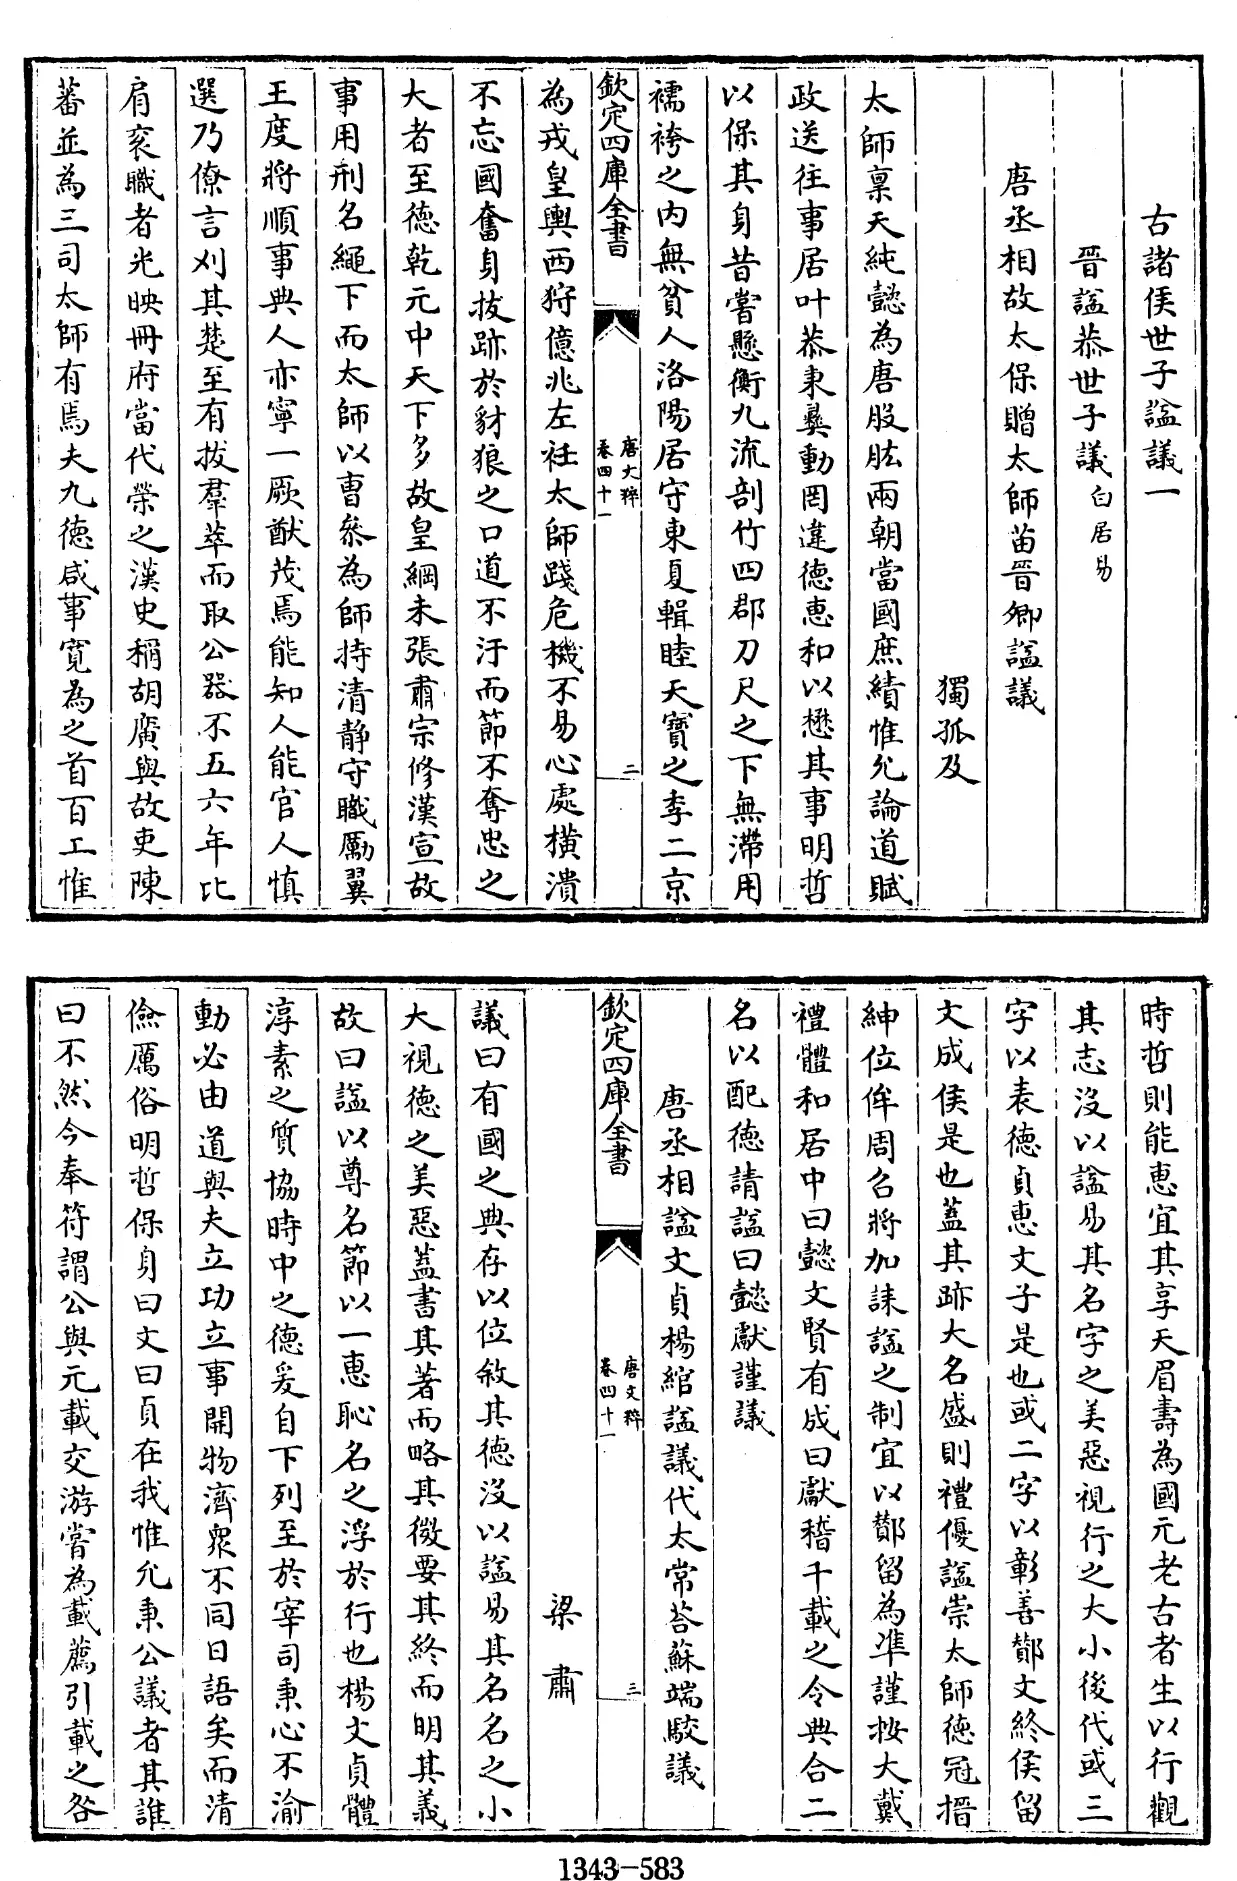 古諸侯世子謚議一
晉謚恭世子議白居易
唐丞相故太保贈太師苗晉卿謚議
獨孤及
太師稟天純懿為唐股肱兩朝當國庶績惟允論道賦
政送往事居叶恭秉彞動罔違德惠和以懋其事明哲
以保其身昔嘗懸衡九流剖竹四郡刀尺之下無滯用
襦袴之内無貧人洛陽居守東夏輯睦天寶之季二京
欽定四庫全書
唐文粹
卷四十一
二
為戎皇輿西狩億兆左衽太師踐危機不易心處橫潰
不忘國奮身拔跡於豺狼之口道不汙而節不奪忠之
大者至德乾元中天下多故皇綱未張肅宗修漢宣故
事用刑名繩下而太師以曹叅為師持清静守職勵翼
王度將順事典人亦寧一厥猷茂焉能知人能官人慎
選乃僚言刈其楚至有拔羣萃而取公器不五六年比
肩衮職者光映冊府當代榮之漢史稱胡廣與故吏陳
蕃並為三司太師有焉夫九德咸事寛為之首百工惟
時哲則能惠宜其享天眉壽為國元老古者生以行觀
其志沒以謚易其名字之美惡視行之大小後代或三
字以表德貞惠文子是也或二字以彰善酇文終侯留
文成侯是也蓋其跡大名盛則禮優謚崇太師德冠搢
紳位侔周召將加誄謚之制宜以酇留為準謹按大戴
禮體和居中曰懿文賢有成曰獻稽千載之令典合二
名以配德請謚曰懿獻謹議
唐丞相謚文貞楊綰謚議代太常荅蘇端駮議
欽定四庫全書
唐文粹
卷四十一
三
梁肅
議曰有國之典存以位敘其德沒以謚易其名名之小
大視德之美惡蓋書其著而略其微要其終而明其義
故曰謚以尊名節以一惠恥名之浮於行也楊文貞體
淳素之質協時中之德爰自下列至於宰司秉心不渝
動必由道與夫立功立事開物濟衆不同日語矣而清
儉厲俗明哲保身曰文曰貞在我惟允秉公議者其誰
曰不然今奉符謂公與元載交游嘗為載薦引載之咎
1343-583